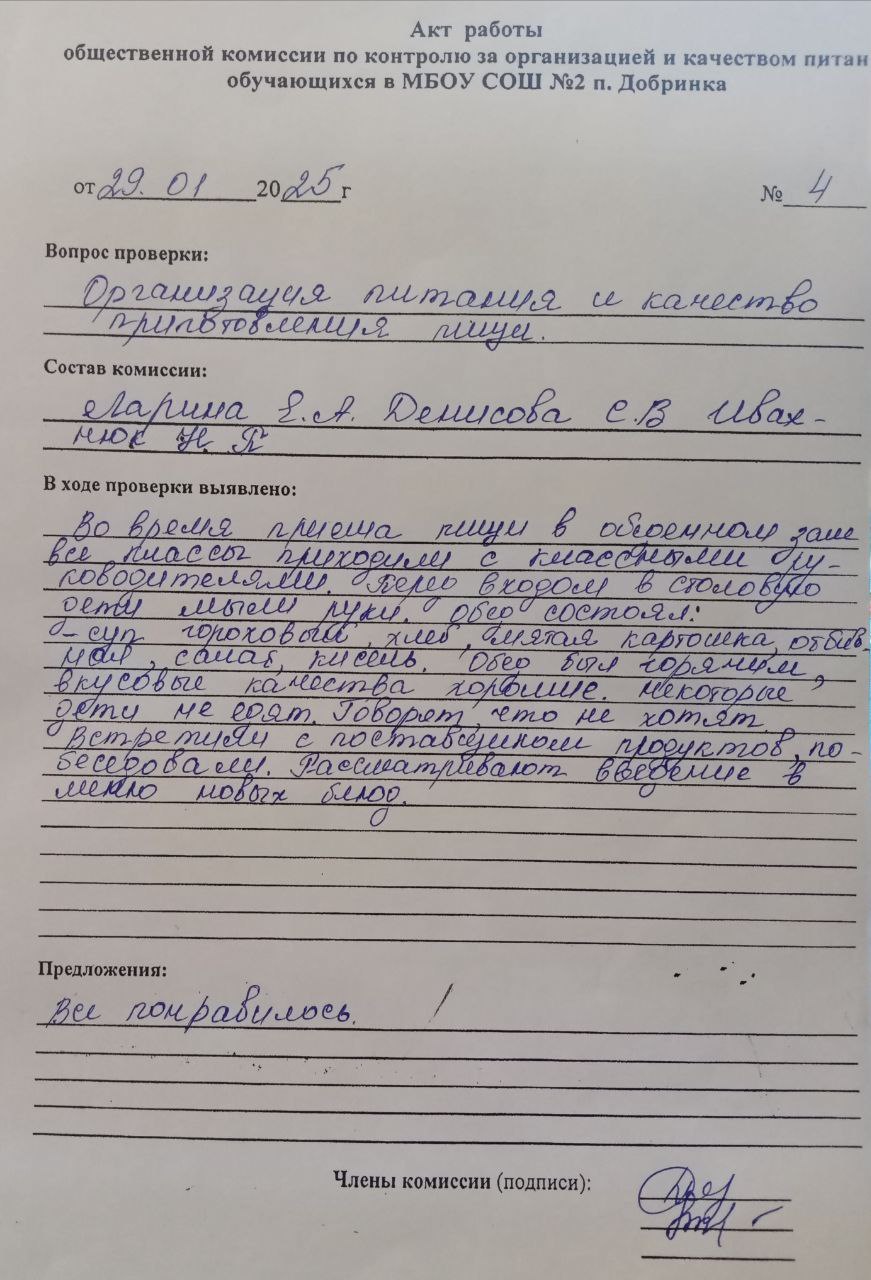 Акт работы
общественной комиссии по контролю за организацией и качеством питан
обучающихся в МБОУ СОШ №2 п. Добринка
от 29. 01 2025 г № 4
Вопрос проверки:
Организация питания и качество
приготовления пищи.
Состав комиссии:
Ларина Е.А. Денисова С.В Ивах-
нюк Н. П
В ходе проверки выявлено:
Во время приема пищи в обеденном зале
все классы приходили с классными ру-
ководителями. Перед входом в столовую
дети мыли руки. Обед состоял:
- суп гороховый, хлеб, мятая картошка, отбив-
ная, салат, кисель. Обед был горячим,
вкусовые качества хорошие. Некоторые
дети не едят. Говорят, что не хотят.
Встретили с поставщиком продуктов, по-
беседовали. Рассматривают введение в
меню новых блюд.
Предложения:
Все понравилось.
Члены комиссии (подписи):